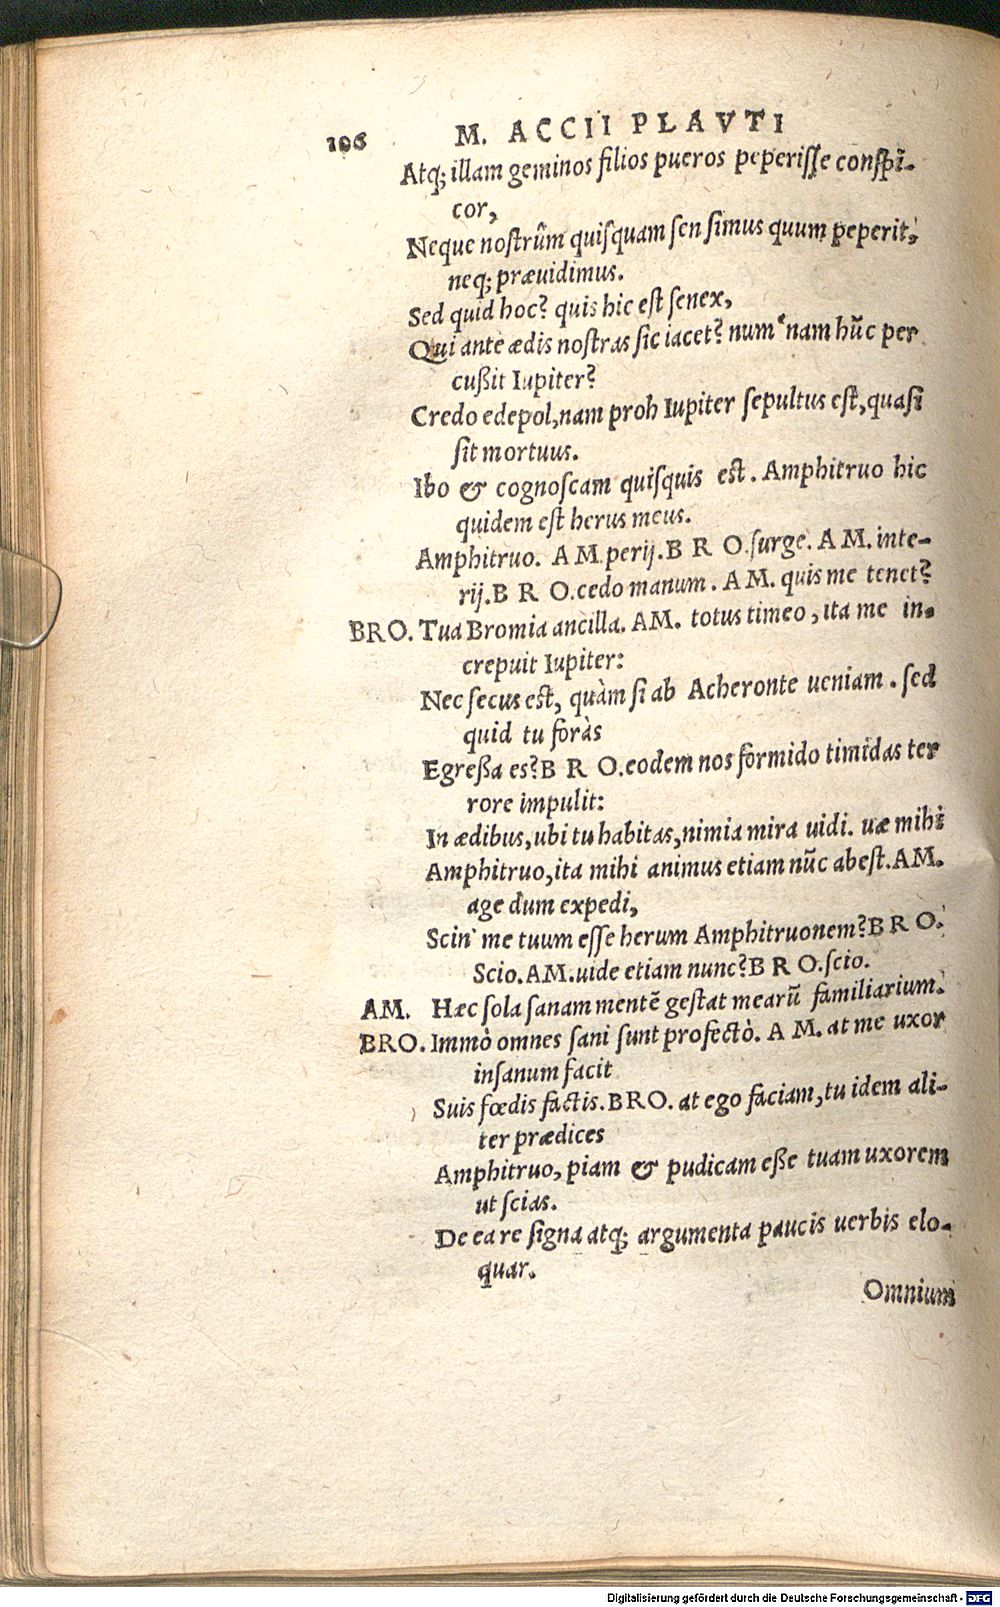 106 M. ACCII PLAVTI
Atq; illam geminos filios pueros peperisse conspĩ-
cor,
Neque nostrûm quisquam sensimus quum peperit,
neq; præuidimus.
Sed quid hoc? quis hic est senex,
Qui ante ædis nostras sic iacet? num nam hũc per
cußit Iupiter?
Credo edepol, nam proh Iupiter sepultus est, quasi
sit mortuus.
Ibo & cognoscam quisquis est. Amphitruo hic
quidem est herus meus.
Amphitruo. AM. perij. BRO. surge. AM. inte-
rij. BRO. cedo manum. AM. quis me tenet?
BRO. Tua Bromia ancilla. AM. totus timeo, ita me in-
crepuit Iupiter:
Nec secus est, quàm si ab Acheronte ueniam. sed
quid tu foràs
Egreßa es? BRO. eodem nos formido timidas ter
rore impulit:
In ædibus, ubi tu habitas, nimia mira uidi. uæ mihi
Amphitruo, ita mihi animus etiam nũc abest. AM.
age dum expedi,
Scin' me tuum esse herum Amphitruonem? BRO.
Scio. AM. uide etiam nunc? BRO. scio.
AM. Hæc sola sanam mentẽ gestat mearũ familiarium.
BRO. Immò omnes sani sunt profectò. AM. at me uxor
insanum facit
Suis fœdis factis. BRO. at ego faciam, tu idem ali-
ter prædices
Amphitruo, piam & pudicam eße tuam uxorem
ut scias.
De ea re signa atq; argumenta paucis uerbis elo-
quar.
Omnium
Digitalisierung gefördert durch die Deutsche Forschungsgemeinschaft - DFG